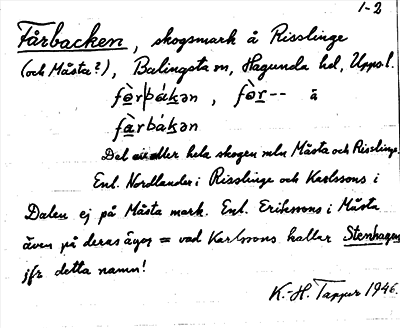 1-2
Fårbacken, skogsmark å Risslinge
(och Måsta?), Balingsta sn, Hagunda hd, Uppsl.
fo̱rbáḵən, fo̱r-- å
fa̱rbáḵən
Del av eller hela skogen mln Måsta och Risslinge.
Enl. Nordlander i Risslinge och Karlssons i
Dalen ej på Måsta mark. Enl. Erikssons i Måsta
även på deras ägor = vad Karlssons kallar Stenhagen
jfr detta namn!
K.-H. Tapper 1946.